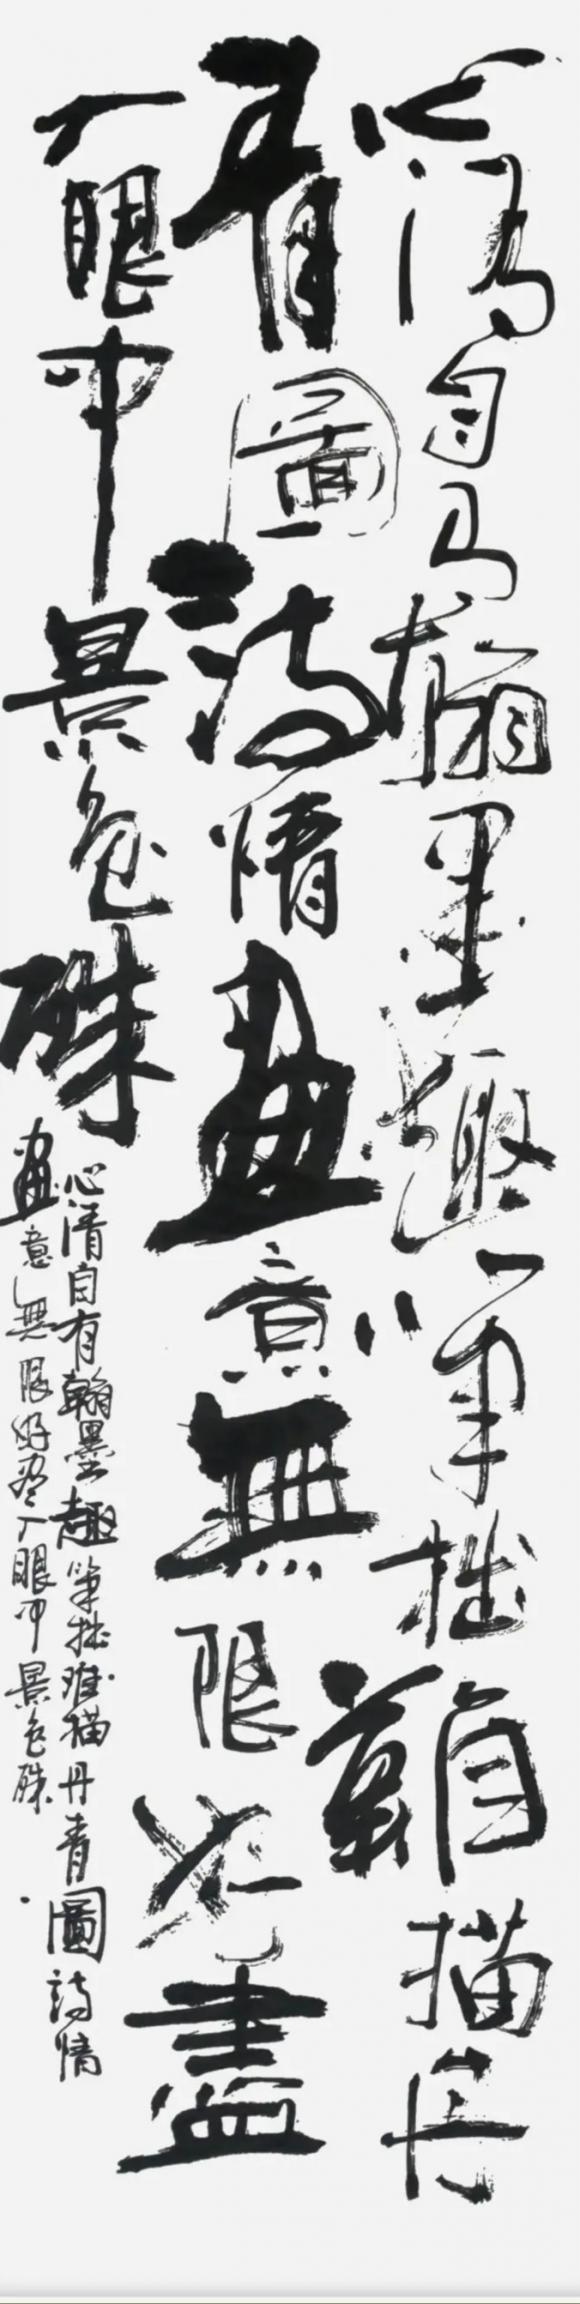 心清自有翰墨趣笔拙難描丹
青圖詩情畫意無限好盡
入眼中景色殊
心清自有翰墨趣笔拙难描丹青圖詩情
畫意無限好尽入眼中景色殊